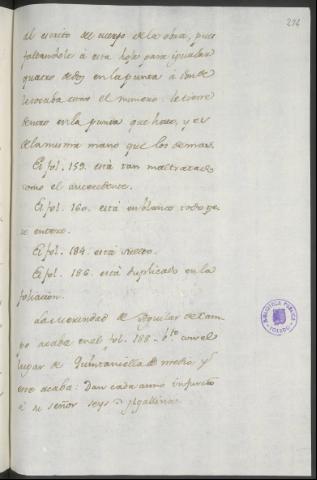 216
al escrito del cuerpo de la obra, pues
faltandole á esta hoja para igualar
quatro dedos en la punta á donde
le tocaba como el numero le tiene
dentro en la punta que hace, y es
de la misma mano que los demas.
El fol. 159. está tan maltratado
como el antecedente.
El fol. 160. está en blanco todo pe
ro entero.
El fol. 184. está suelto.
El fol. 186. está duplicado en la
foliacion.
La Merindad de Aguilar de Cam
po acaba en el fol. 188. bto con el
lugar de Quintanilla de
este acaba: Dan cada anno infurcion
á su señor seys
BIBLIOTECA PUBLICA
TOLEDO